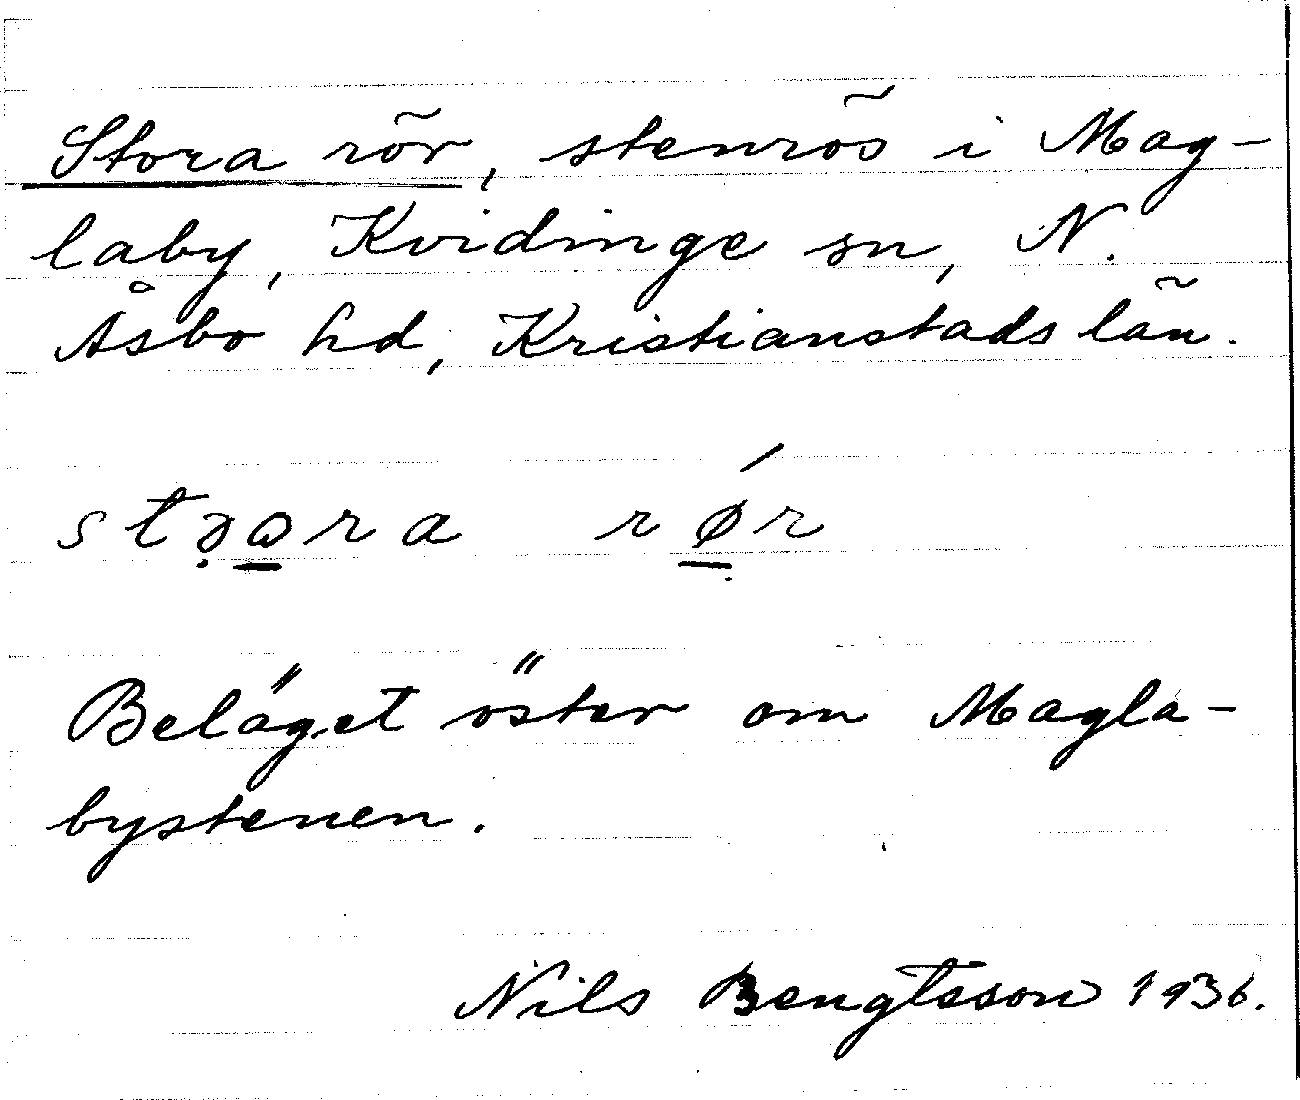 Stora rör, stenrös i Mag-
laby, Kvidinge sn, N.
Åsbo hd, Kristianstads län.
rǿr
Beläget öster om Magla-
bystenen.
Nils Bengtsson 1936.